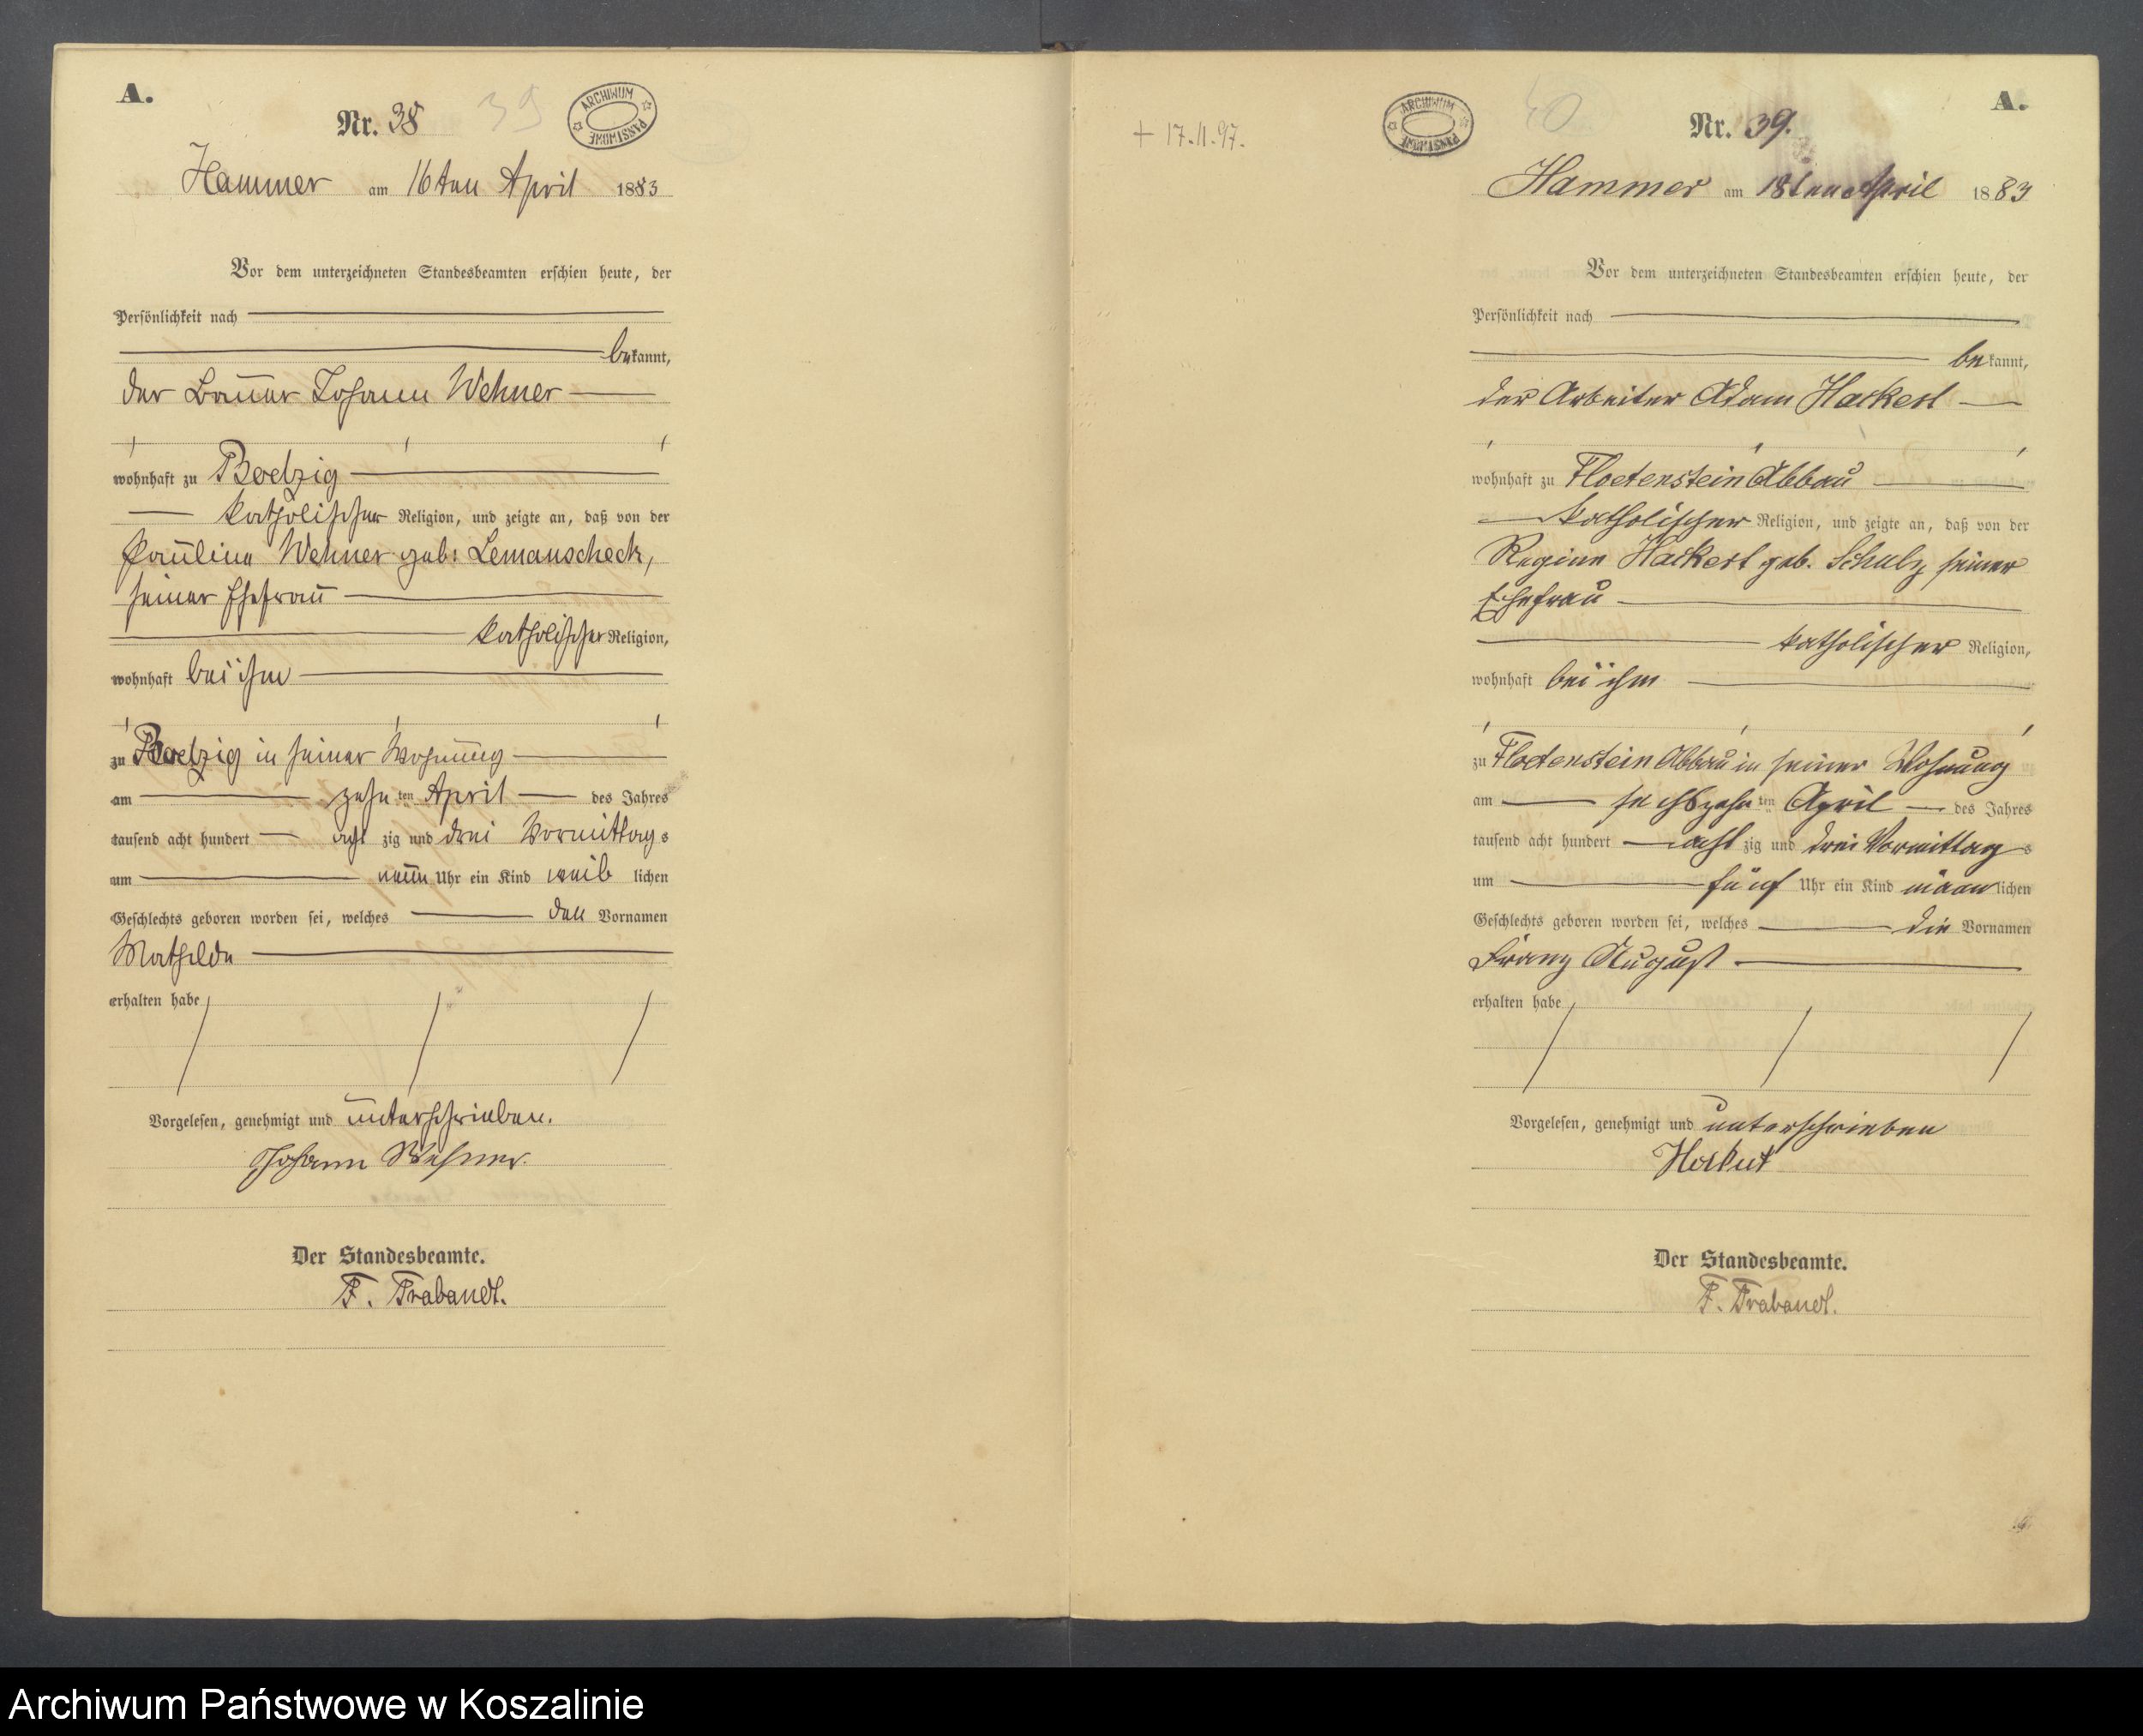 A.
Nr. 38
39
ARCHIWUM PAŃSTWOWE
Hammer am 16ten April 1883
Vor dem unterzeichneten Standesbeamten erschien heute, der
Persönlichkeit nach
bekannt,
der Bauer Johann Wehner
wohnhaft zu Boelzig
katholischer Religion, und zeigte an, daß von der
Pauline Wehner geb: Lemanscheck,
seiner Ehefrau
katholischer Religion,
wohnhaft bei ihm
zu Boelzig in seiner Wohnung
am zehnten April des Jahres
tausend acht hundert acht zig und drei Vormittags
um neun Uhr ein Kind weib lichen
Geschlechts geboren worden sei, welches den Vornamen
Mathilde
erhalten habe
Vorgelesen, genehmigt und unterschrieben.
Johann Wehner.
Der Standesbeamte.
F. Trabandt.
A.
+ 17.11.97.
ARCHIWUM PAŃSTWOWE
40
Nr. 39.
Hammer am 18ten April 1883
Vor dem unterzeichneten Standesbeamten erschien heute, der
Persönlichkeit nach
bekannt,
der Arbeiter Adam Hackert
wohnhaft zu Floetenstein Abbau
katholischer Religion, und zeigte an, daß von der
Regine Hackert geb. Schulz seiner
Ehefrau
katholischer Religion,
wohnhaft bei ihm
zu Floetenstein Abbau in seiner Wohnung
am sechszehnten April des Jahres
tausend acht hundert acht zig und drei Vormittags
um fünf Uhr ein Kind männlichen
Geschlechts geboren worden sei, welches die Vornamen
Franz August
erhalten habe
Vorgelesen, genehmigt und unterschrieben
Hackert
Der Standesbeamte.
F. Trabandt.
Archiwum Państwowe w Koszalinie